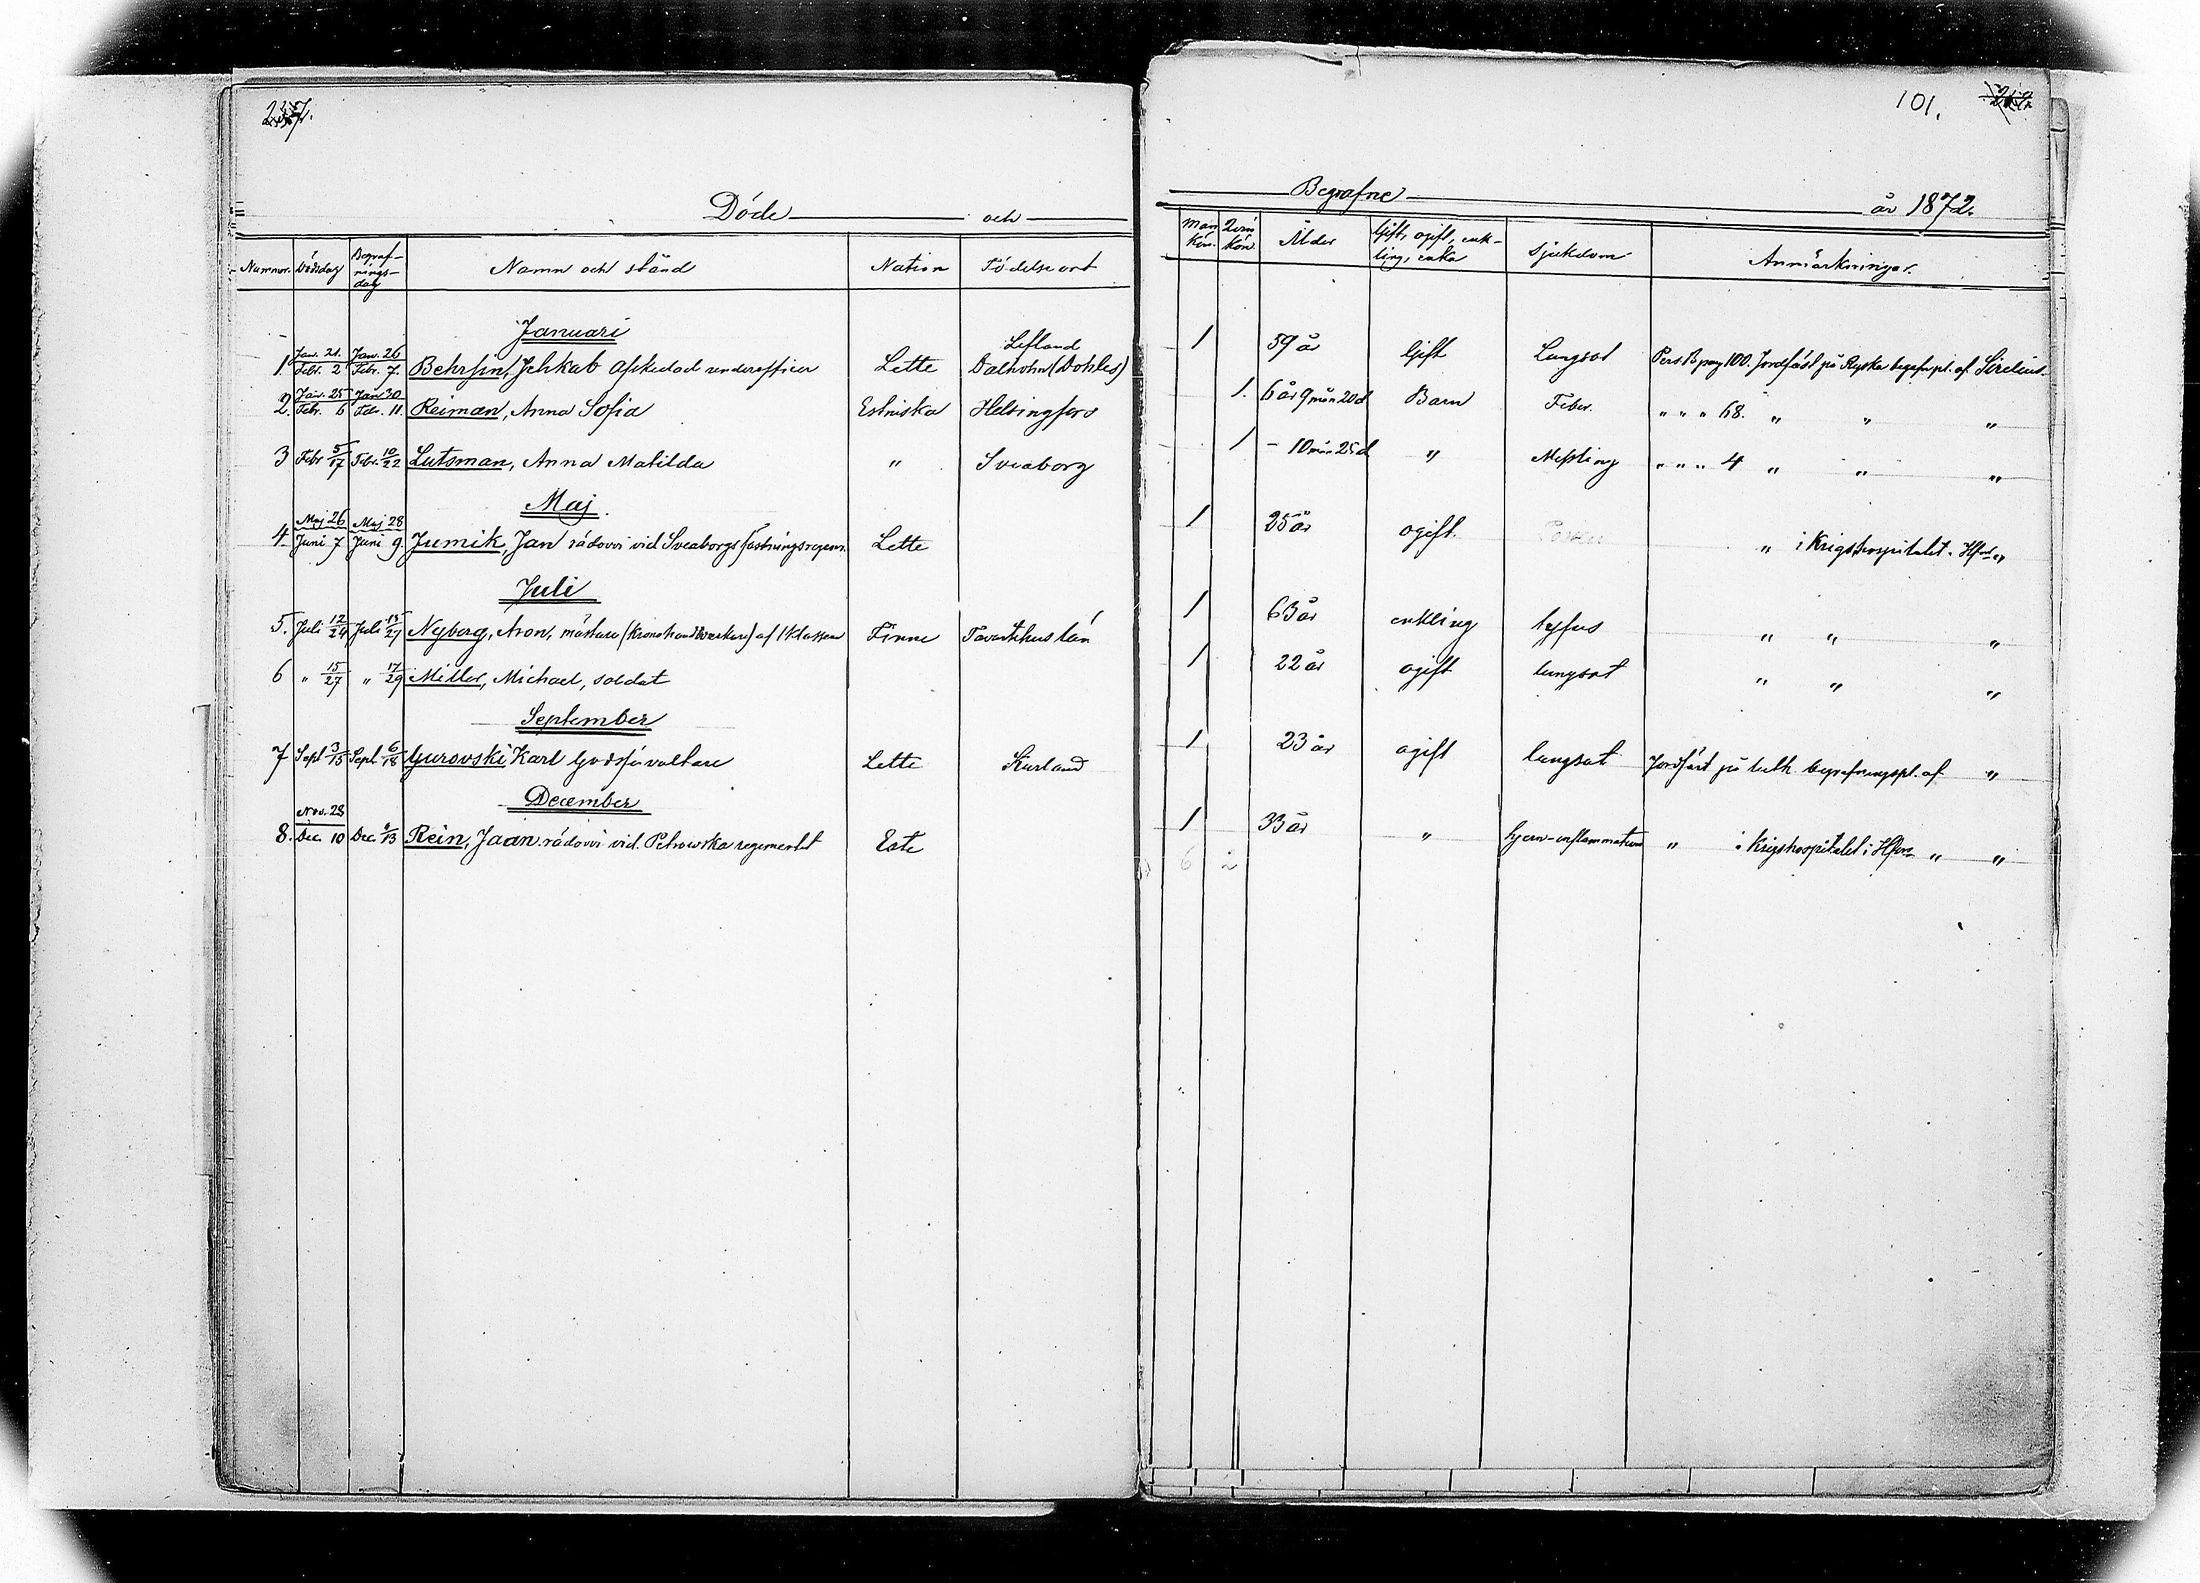 101.
Döde och Begrafne år 1872.
Nummer. Dödsdag Begraf-nings-dag Namn och stånd Nation Födelseort Mankön. Qvinkön. Ålder Gift, ogift, enk-ling, enka Sjukdom Anmärkningar.
Januari
1. Jan. 21. Febr. 2 Jan. 26 Febr. 7. Behrsin, Jehkab afskedad underofficer Lette Lifland Dalhohn (Dohles) 1 59 år Gift Lungsot Pers. B. pag 100. Jordfäst på Ryska begrafn.pl. af Sirelius.
2. Jan. 25 Febr. 6 Jan 30 Febr. 11. Reiman, Anna Sofia Estniska Helsingfors 1. 6 år 9 mån 20 d Barn Feber. " " " 68. " " "
3 Febr 5/17 Febr. 10/22 Lutsman, Anna Matilda " Sveaborg 1 – 10 mån 25 d " Meßling " " " 4 " " "
Maj.
4. Maj 26 Juni 7 Maj 28 Juni 9. Jumik, Jan rådovoi vid Sveaborgs fästningsregem. Lette 1 25 år ogift. " i Krigshospitalet. Hfors "
Juli
5. Juli 12/24 Juli 15/27 Nyberg, Aron, mästare (Kronohandtverkare) af 1 Klassen Finne Tavastehus län 1 63 år enkling tyfus " " "
6 " 15/27 " 17/29 Miller, Michael, soldat 1 22 år ogift lungsot " " "
September
7 Sept 3/15 Sept 6/18 Gurovski Karl Godsförvaltare Lette Kurland 1 23 år ogift lungsot Jordfäst på luth. begrafningspl. af "
December
8. Nov. 28 Dec. 10 Dec. 1/13 Rein, Jaan rådovoi vid Petrowska regementet Este 1 33 år " hjern-inflammation " i Krigshospitalet i Hfors " "
6 2